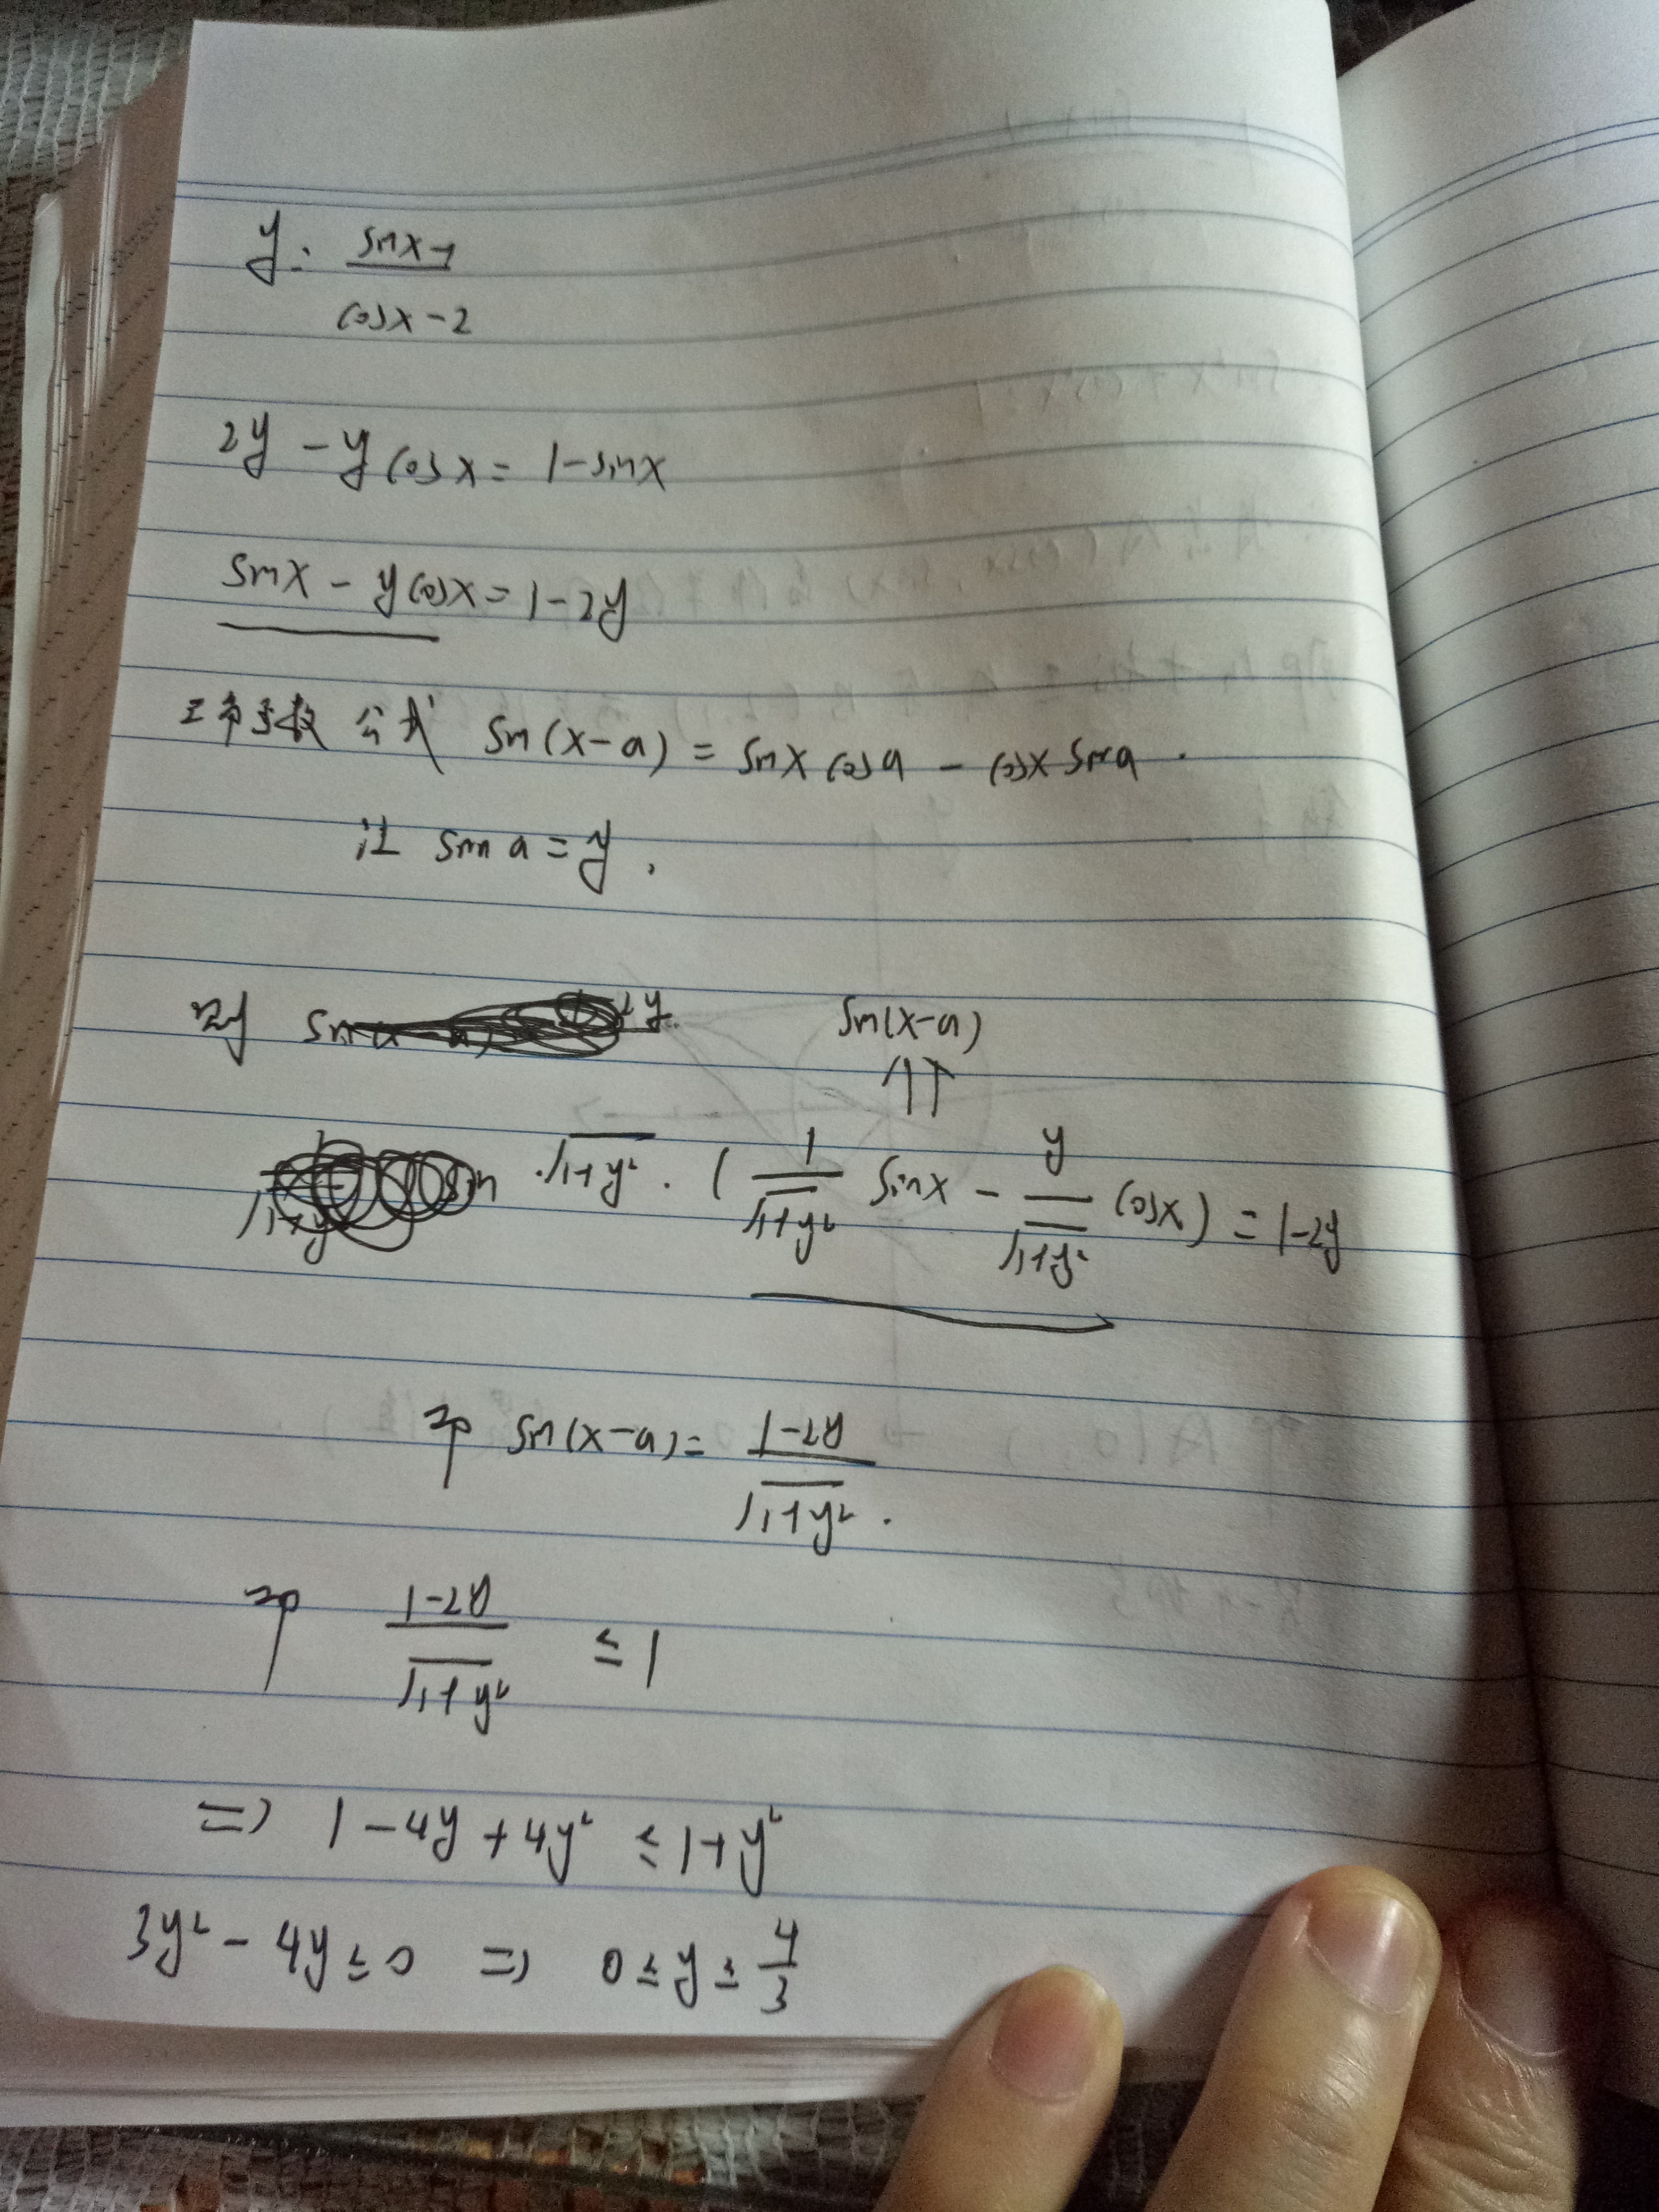 y = (sinx-1)/(cosx-2)
2y - ycosx = 1-sinx
sinx - ycosx = 1-2y
公式 sin(x-a) = sinx cosa - cosx sina.
让 sina = y,
则
sin(x-a)
⇑
√(1+y²) · ( 1/√(1+y²) sinx - y/√(1+y²) cosx ) = 1-2y
即 sin(x-a) = (1-2y)/√(1+y²).
即 (1-2y)/√(1+y²) ≤ 1
=> 1-4y+4y² ≤ 1+y²
3y²-4y ≤ 0 => 0 ≤ y ≤ 4/3